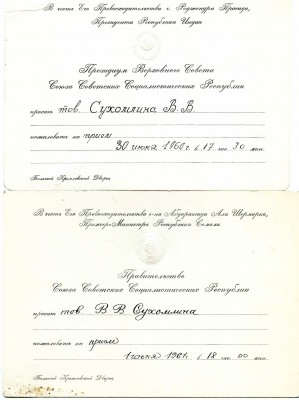 В честь Его Превосходительства г. Раджендра Прасада,
Президента Республики Индии
Президиум Верховного Совета
Союза Советских Социалистических Республик
просит тов. Сухомлина В.В.
пожаловать на прием
30 июня 1960 г. в 17 час. 30 мин.
Большой Кремлевский Дворец
В честь Его Превосходительства г-на Абдирашида Али Шермарка,
Премьер-Министра Республики Сомали
Правительство
Союза Советских Социалистических Республик
просит тов В В Сухомлина
пожаловать на прием
1 июня 1961 г. в 18 час. 00 мин.
Большой Кремлевский Дворец